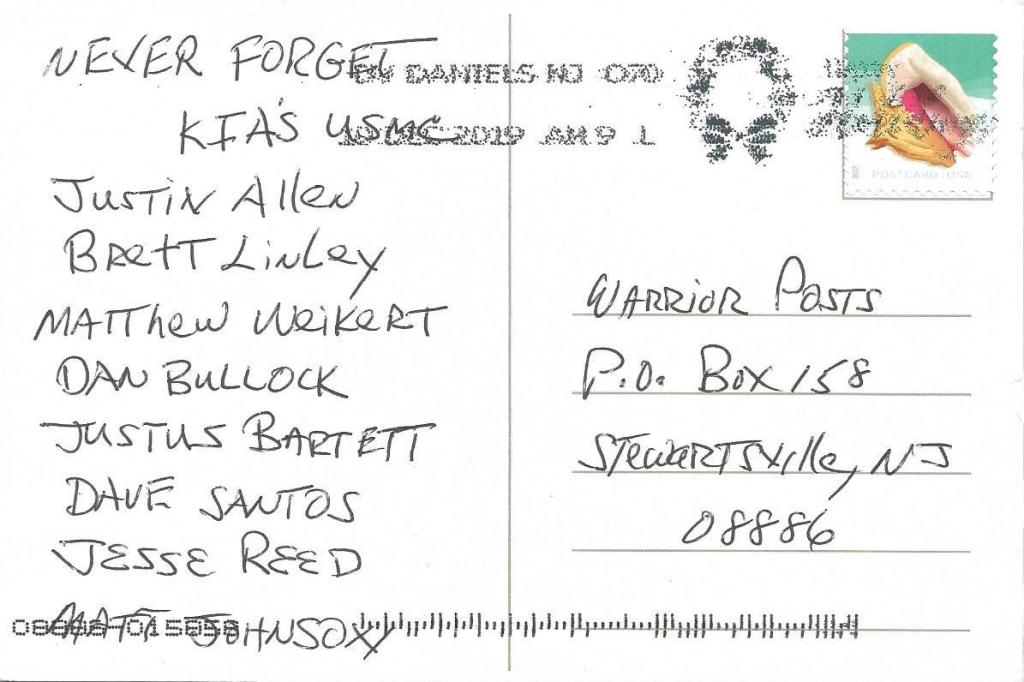 NEVER FORGET
KIA'S USMC
JUSTIN Allen
BRETT LINLEY
MATTHEW WEIKERT
DAN BULLOCK
JUSTUS BARTETT
DAVE SANTOS
JESSE REED
MATT JOHNSON
DV DANIELS NJ 070
2019 AM 9 L
Happy
2017
POSTCARD USA
WARRIOR POSTS
P.O. BOX 158
STEWARTSVILLE, NJ
08886
08886-015858